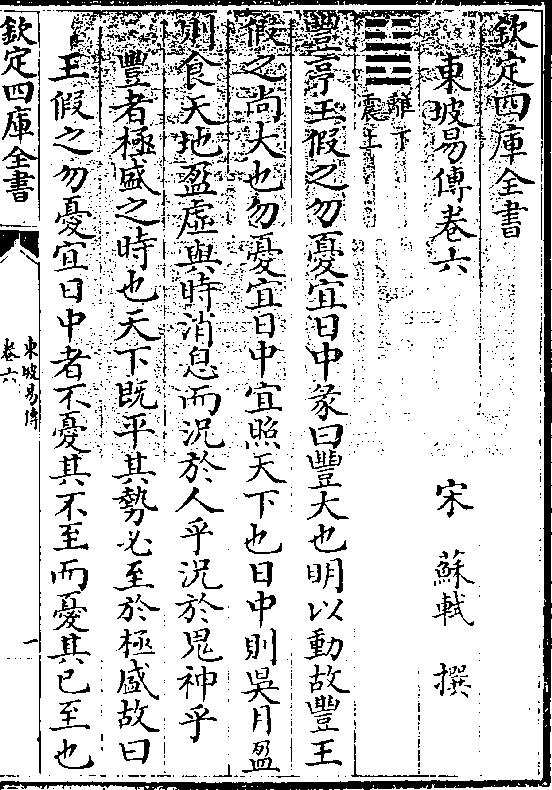 欽定四庫全書
東坡易傳卷六
宋 蘇軾 撰
離下
震上
豐亨王假之勿憂宜日中彖曰豐大也明以動故豐王
假之尚大也勿憂宜日中宜照天下也日中則昃月盈
則食天地盈虛與時消息而況於人乎況於鬼神乎
豐者極盛之時也天下既平其勢必至於極盛故曰
王假之勿憂宜日中者不憂其不至而憂其已至也
欽定四庫全書
東坡易傳
卷六
一